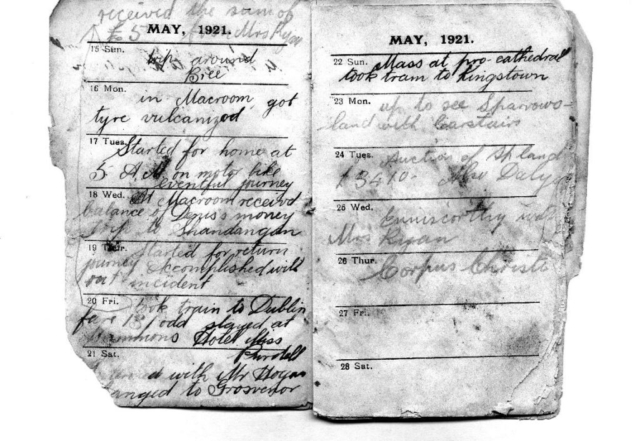 received the sum of
£5 Mrs Ryan
MAY, 1921.
15 Sun.
trip around
Bree
16 Mon.
in Macroom got
tyre vulcanized
17 Tues.
Started for home at
5 A.M. on motor bike
eventful journey
18 Wed. At Macroom received
balance of money
trip to Shandangan
19 Thur. Started for return
journey Accomplished with
out incident
20 Fri. Took train to Dublin
fare odd stayed at
Hotel Miss
Purcell
21 Sat.
with Mr Hogan
changed to Grosvenor
MAY, 1921.
22 Sun. Mass at pro-cathedral
took train to Kingstown
23 Mon. up to see Sparrows-
land with Carstairs
24 Tues. Auction of Sp land
£3410 Miss Daly
25 Wed. Enniscorthy
Mrs Ryan
26 Thur. Corpus Christi
27 Fri.
28 Sat.